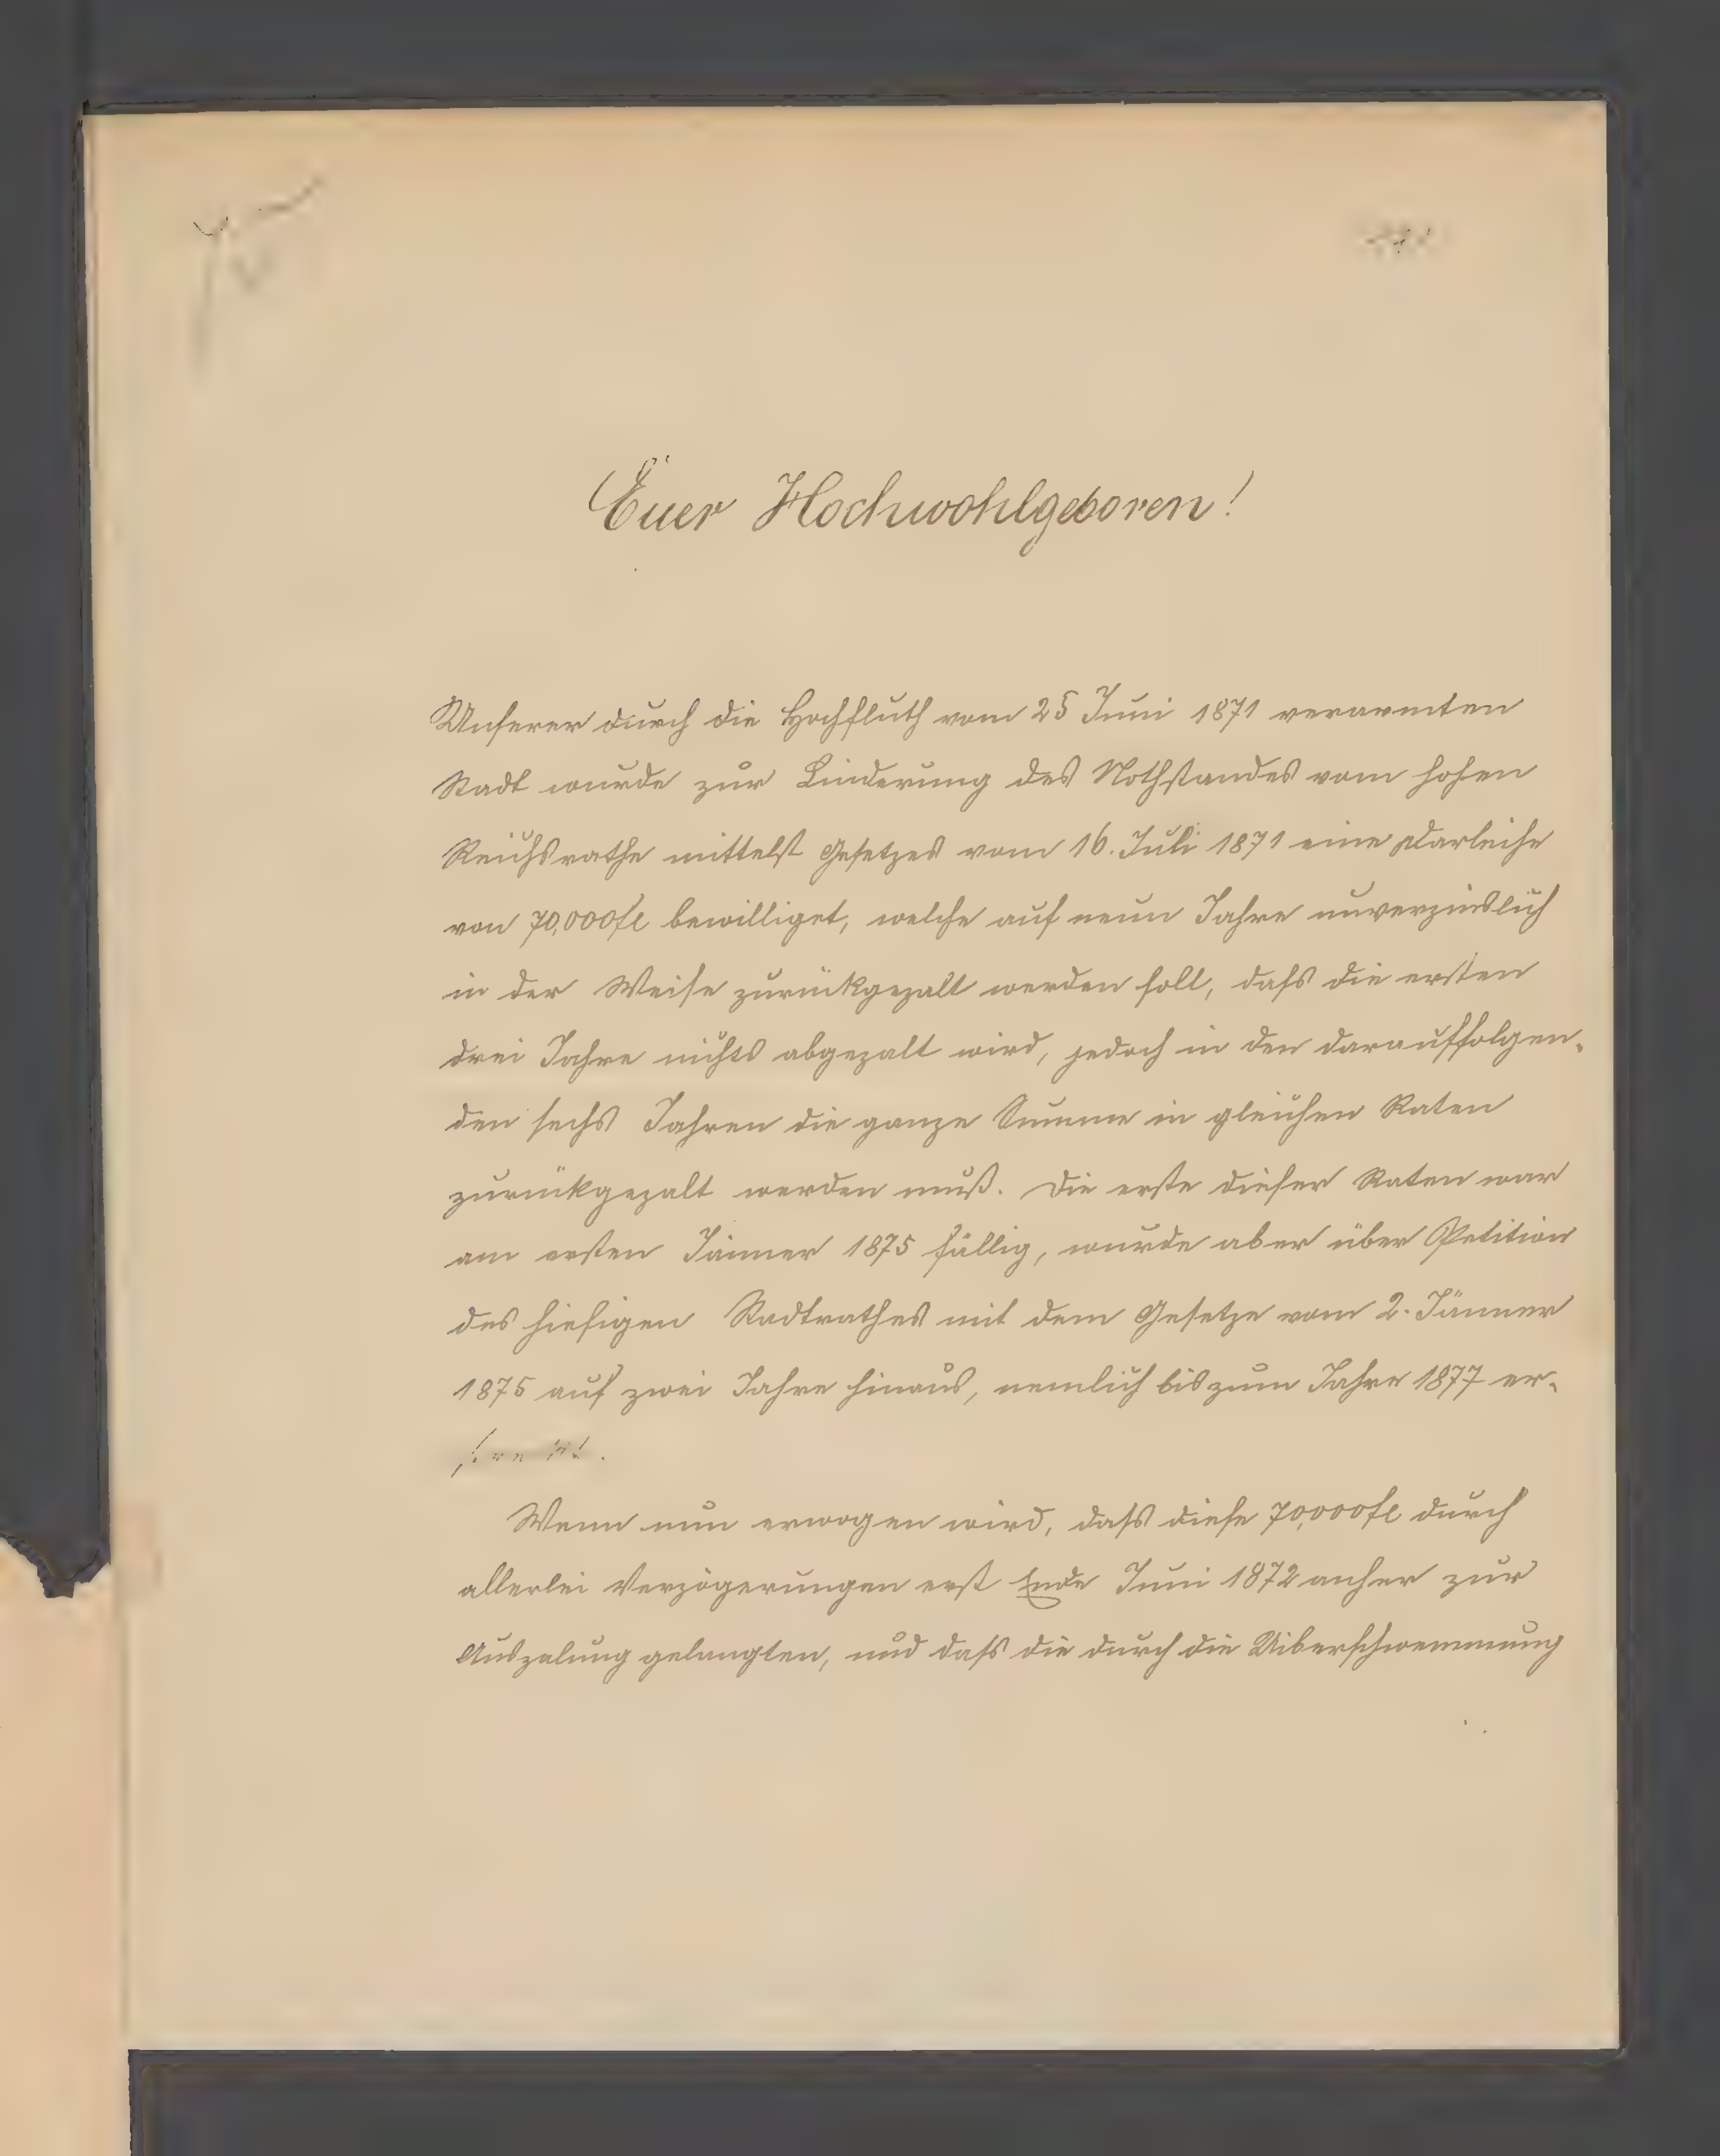 Euer Hochwohlgeboren!
Unserer durch die Hochfluth vom 25 Juni 1871 verarmten
Stadt wurde zur Linderung des Nothstandes vom hohen
Reichsrathe mittelst Gesetzes vom 16. Juli 1871 eine Darleihe
von 70,000 fl bewilliget, welche auf neun Jahre unverzinslich
in der Weise zurückgezalt werden soll, dass die ersten
drei Jahre nichts abgezalt wird, jedoch in den darauffolgen-
den sechs Jahren die ganze Summe in gleichen Raten
zurückgezalt werden muß. Die erste dieser Raten war
am ersten Jänner 1875 fällig, wurde aber über Petition
des hiesigen Stadtrathes mit dem Gesetze vom 2. Jänner
1875 auf zwei Jahre hinaus, nemlich bis zum Jahre 1877 er-
Wenn nun erwogen wird, dass diese 70,000 fl durch
allerlei Verzögerungen erst Ende Juni 1872 anher zur
Auszalung gelangten, und dass die durch die Uiberschwemmung